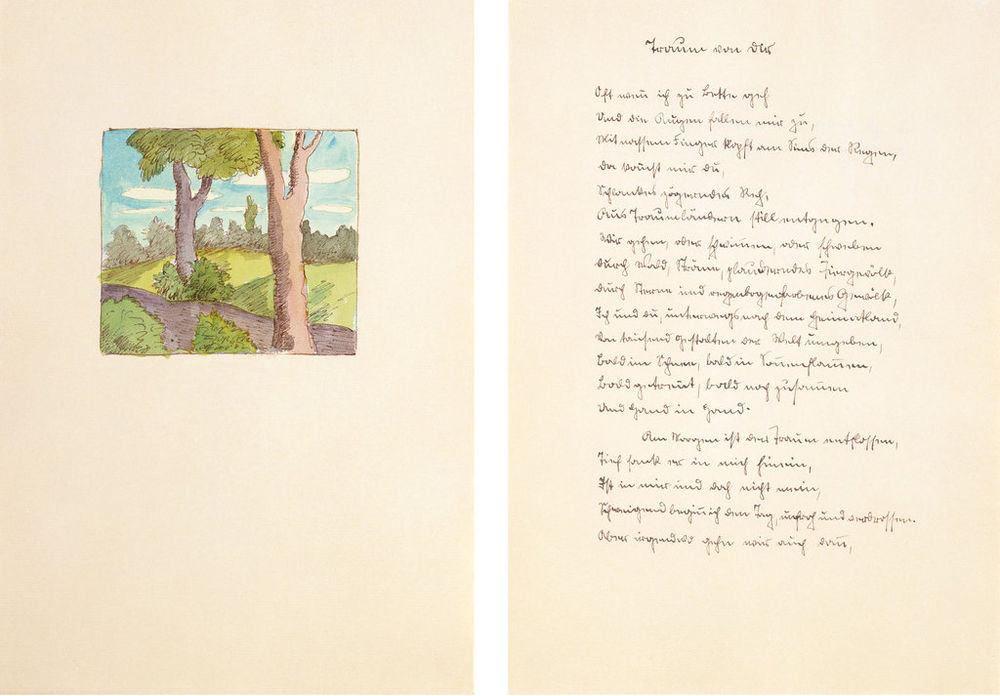 Traum von dir
Oft wenn ich zu Bette geh
Und die Augen fallen mir zu,
Mit nassem Finger klopft am Sims der Regen,
Da kommst mir du,
Schlankes zögerndes Reh,
Aus Traumländern still entgegen.
Wir gehen, oder schwimmen, oder schweben
Durch Wald, Ströme, plauderndes Tiergevölk,
Durch Sterne und regenbogenfarbenes Gewölk,
Ich und du, unterwegs nach dem Heimatland,
Von tausend Gestalten der Welt umgeben,
Bald im Schnee, bald in Sonnenflammen,
Bald getrennt, bald nah zusammen
Und Hand in Hand.
Am Morgen ist der Traum entflossen,
Tief sank er in mich hinein,
Ist in mir und doch nicht mein,
Schweigend beginn ich den Tag, unfroh und verdrossen.
Aber irgendwo gehn wir auch dann,